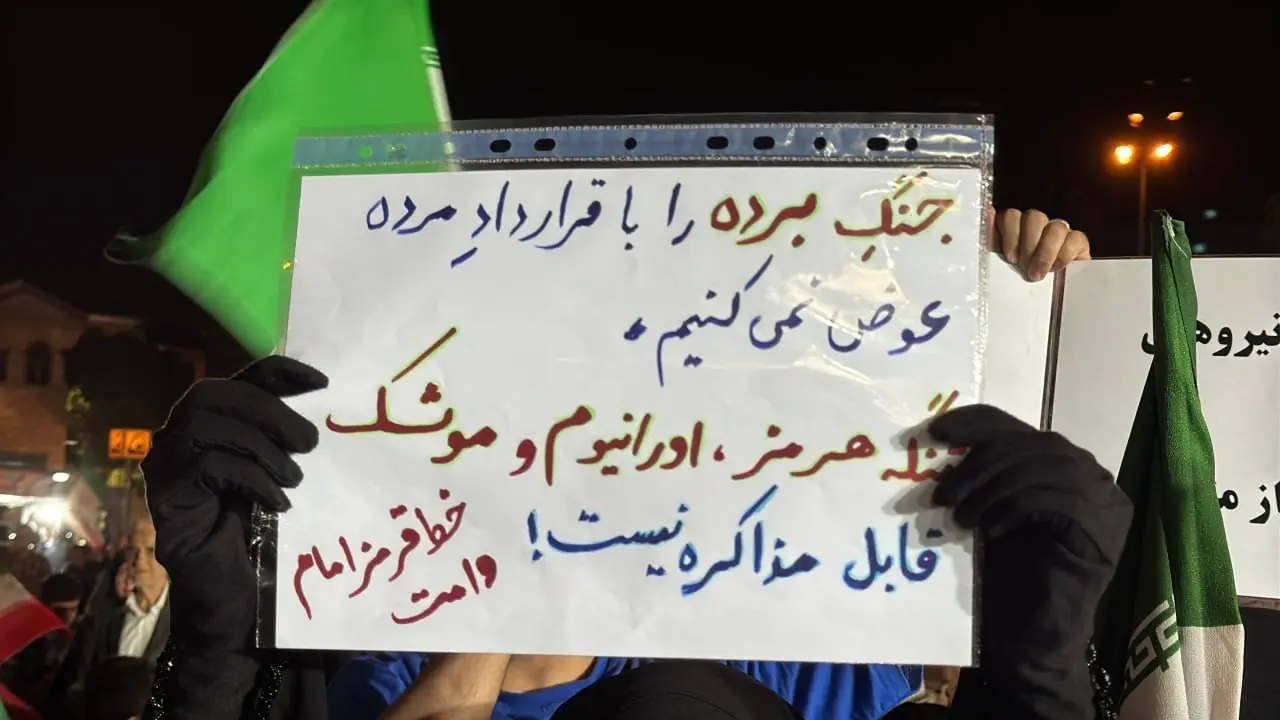 جنگِ برده را با قراردادِ مرده
عوض نمی کنیم.
تنگه هرمز، اورانیوم و موشک
قابل مذاکره نیست!
خط قرمز امام
وامت
نیروهای
از